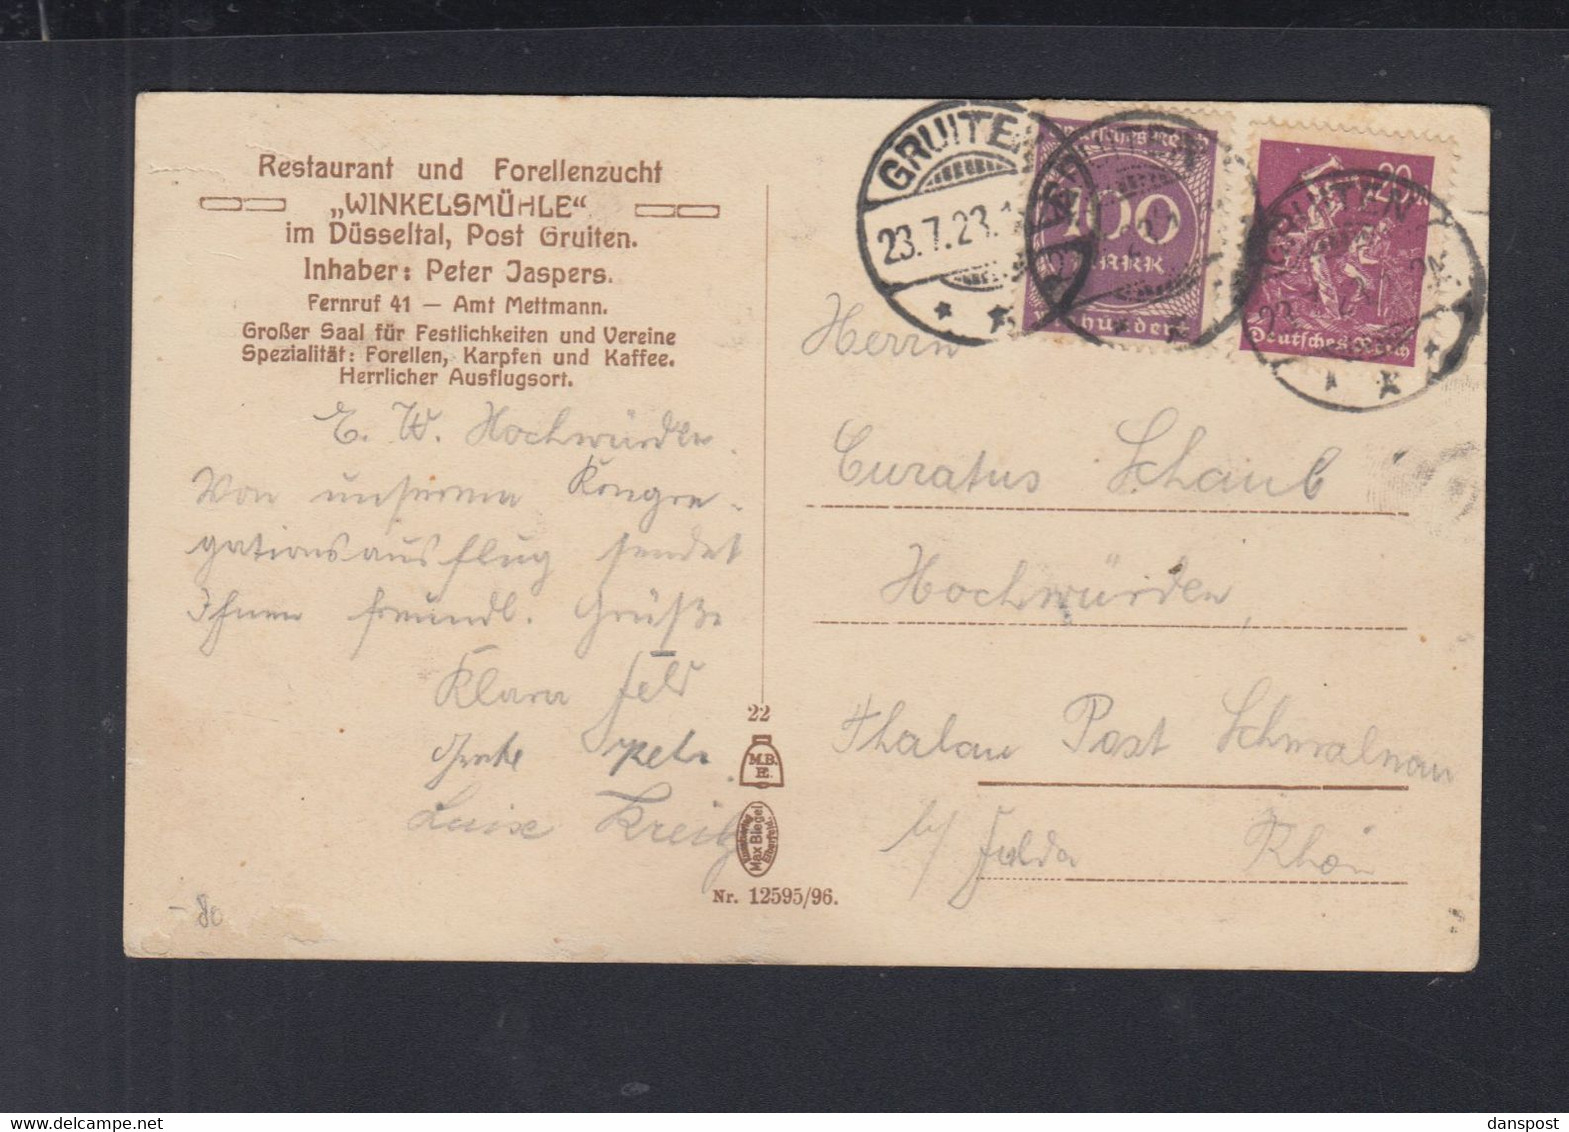 Restaurant und Forellenzucht
„WINKELSMÜHLE“
im Düsseltal, Post Gruiten.
Inhaber: Peter Jaspers.
Fernruf 41 — Amt Mettmann.
Großer Saal für Festlichkeiten und Vereine
Spezialität: Forellen, Karpfen und Kaffee.
Herrlicher Ausflugsort.
E. W. Hochwürden
Von unserem Kongre-
gationsausflug sendet
Ihnen freundl. Grüße
Klara Feld
Luise
22
M.B.
E.
Max Biegel
Nr. 12595/96.
- 80
GRUITEN
23.7.23.
Deutsches Reich
100
MARK
hundert
GRUITEN
20
Deutsches Reich
GRUITEN
Herrn
Curatus Schaub
Hochwürden,
Thalau Post Schmalnau
b/ Fulda Rhön
danspost